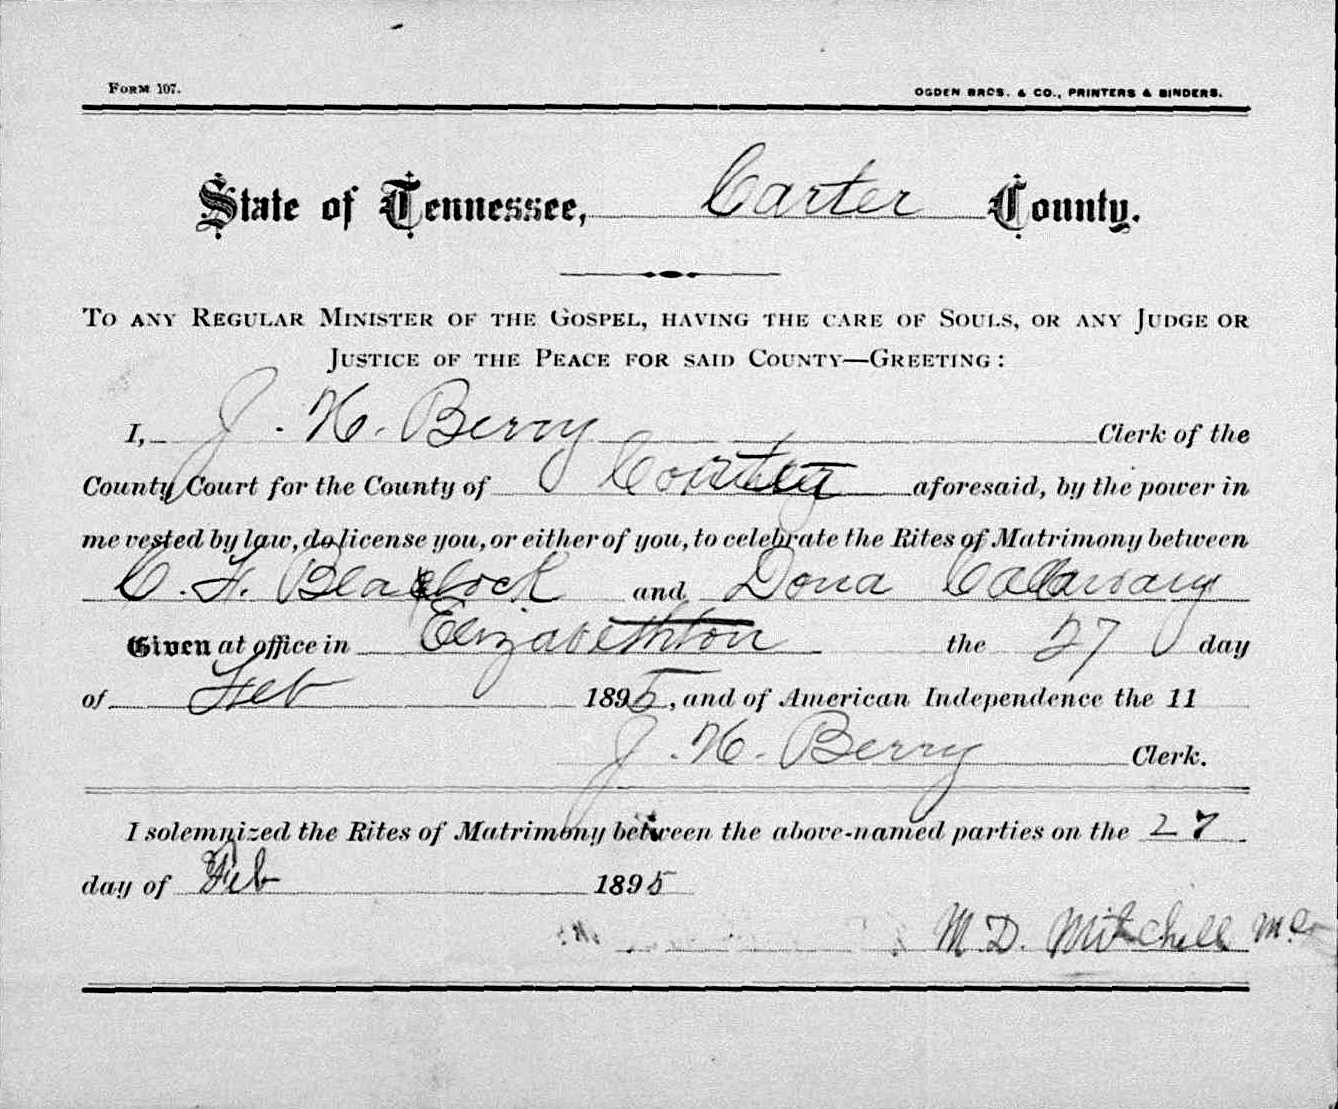 FORM 107.
OGDEN BROS. & CO., PRINTERS & BINDERS.
State of Tennessee, Carter County.
TO ANY REGULAR MINISTER OF THE GOSPEL, HAVING THE CARE OF SOULS, OR ANY JUDGE OR
JUSTICE OF THE PEACE FOR SAID COUNTY—GREETING:
I, J. H. Berry Clerk of the
County Court for the County of Carter aforesaid, by the power in
me vested by law, do license you, or either of you, to celebrate the Rites of Matrimony between
C. F. Blaclock and Dona Callaway
Given at office in Elizabethton the 27 day
of Feb 1895, and of American Independence the 11
J. H. Berry Clerk.
I solemnized the Rites of Matrimony between the above-named parties on the 27
day of Feb 1895
M. D. Mitchell